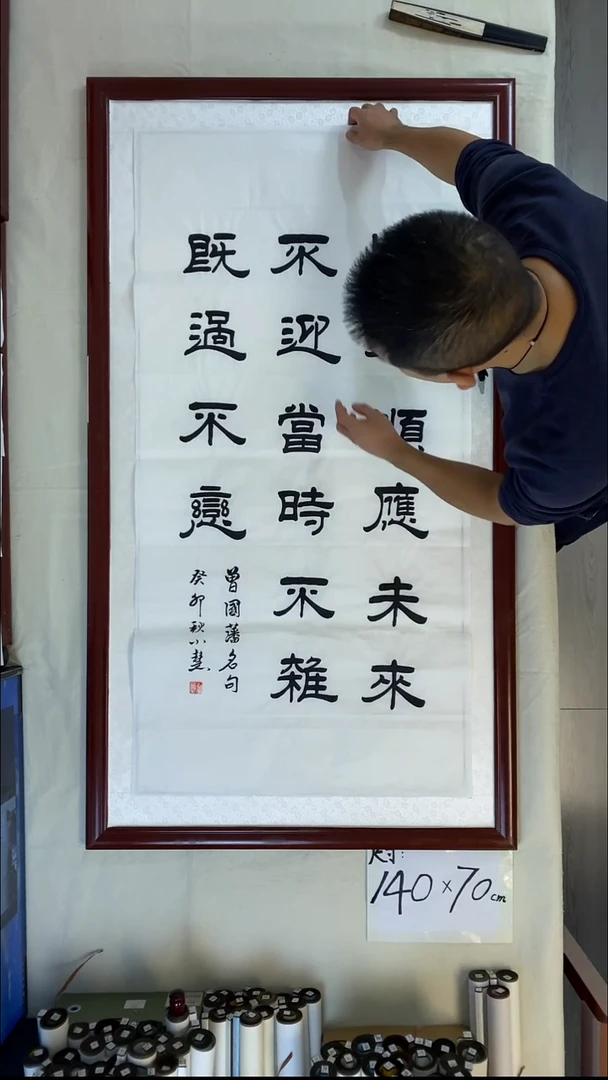 順應未來
不迎當時不雜
既過不戀
曾國藩名句
癸卯秋小慧
140×70cm